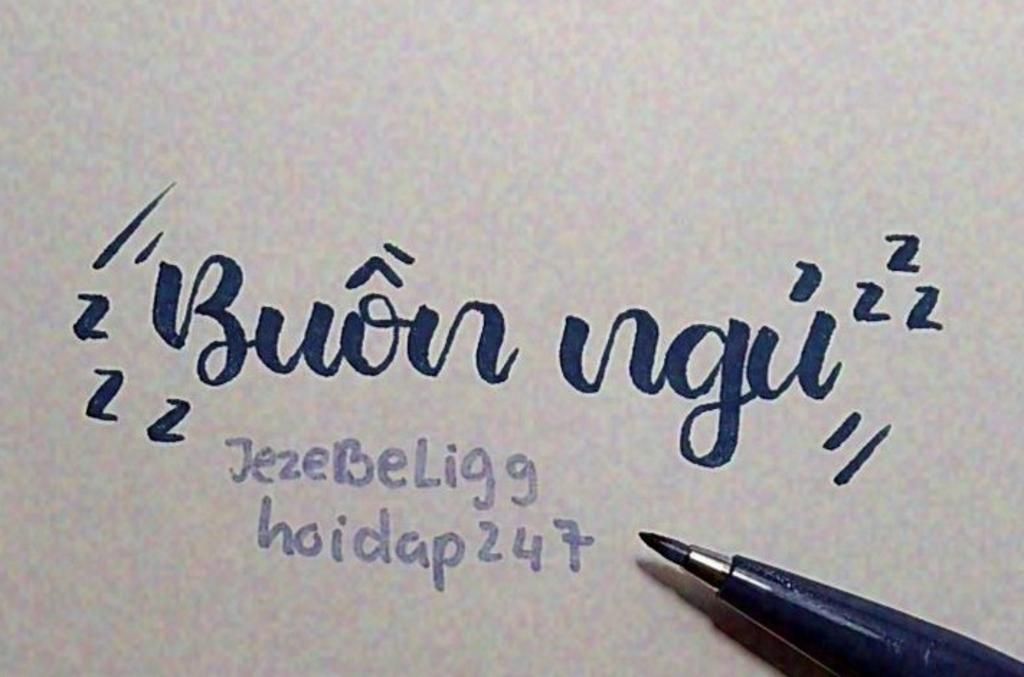 Buồn ngủ
z z z
z z z
JezeBeLigg
hoidap247